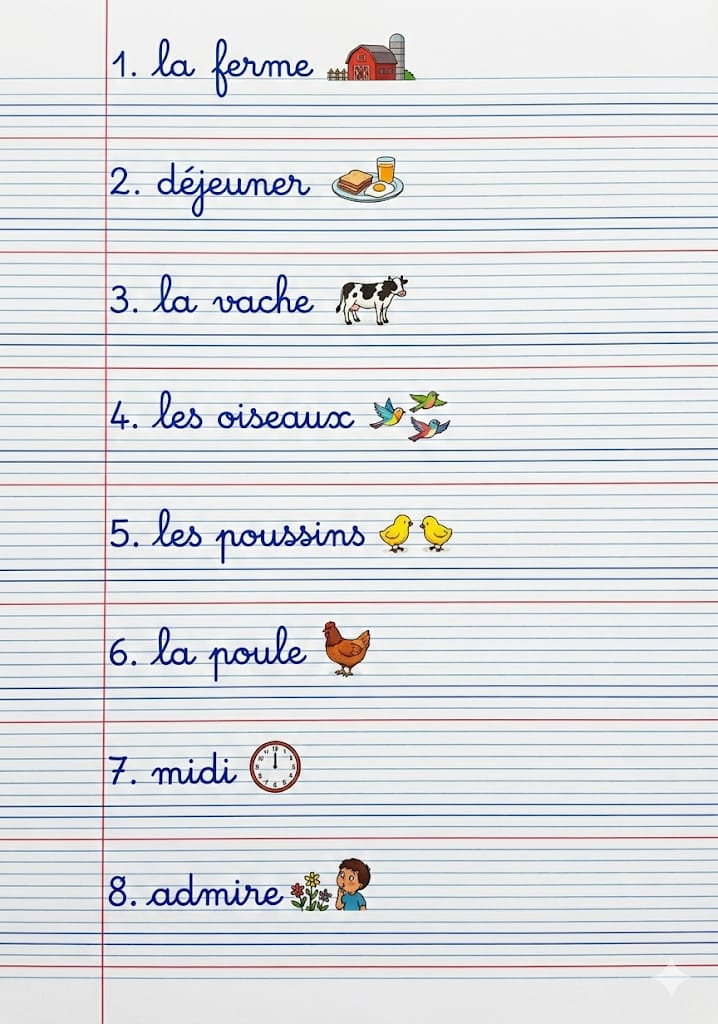 1. la ferme
2. déjeuner
3. la vache
4. les oiseaux
5. les poussins
6. la poule
7. midi
8. admire